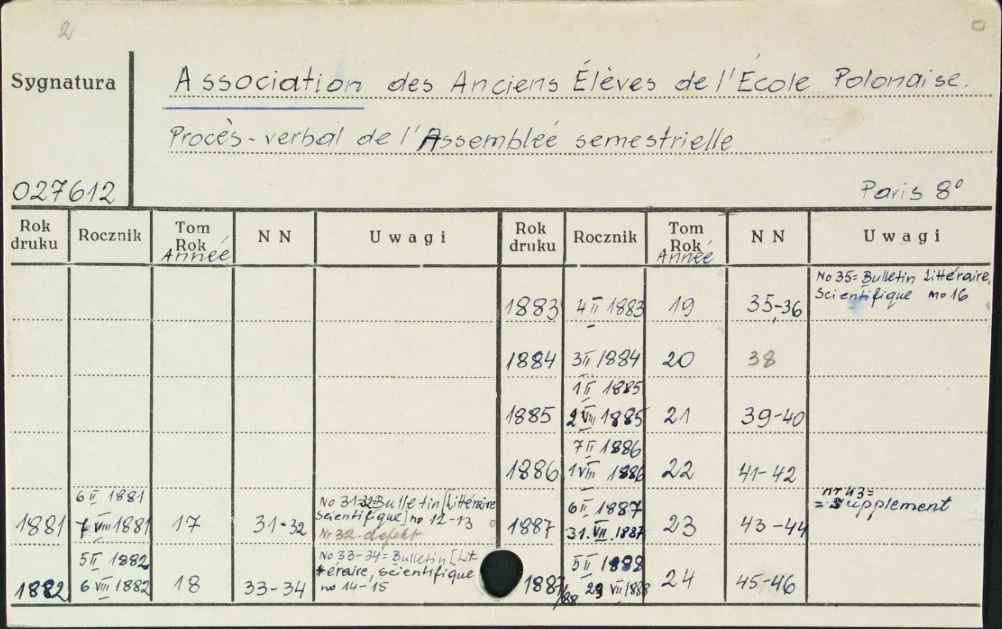 2
Sygnatura
Association des Anciens Élèves de l'École Polonaise.
Procès-verbal de l'Assembleé semestrielle
027612
Paris 8°
Rok druku Rocznik Tom Rok Année NN Uwagi Rok druku Rocznik Tom Rok Année NN Uwagi
1883 4 II 1883 19 35-36 No 35= Bulletin Littéraire,
Scientifique no 16
1884 3 II 1884 20 38
1 II 1885
1885 2 VIII 1885 21 39-40
7 II 1886
1886 1 VIII 1886 22 41-42
6 II 1881
1881 7 VIII 1881 17 31-32 No 31-32 Bulletin [Littéraire
Scientifique] no 12-13
Nr 32 defekt
6 II 1887
1887 31. VII. 1887 23 43-44 nr 43=
= Supplement
5 II 1882
1882 6 VIII 1882 18 33-34 No 33-34= Bulletin [Lit
téraire, scientifique
no 14-15
5 II 1888
1887/88 29 VII 1888 24 45-46